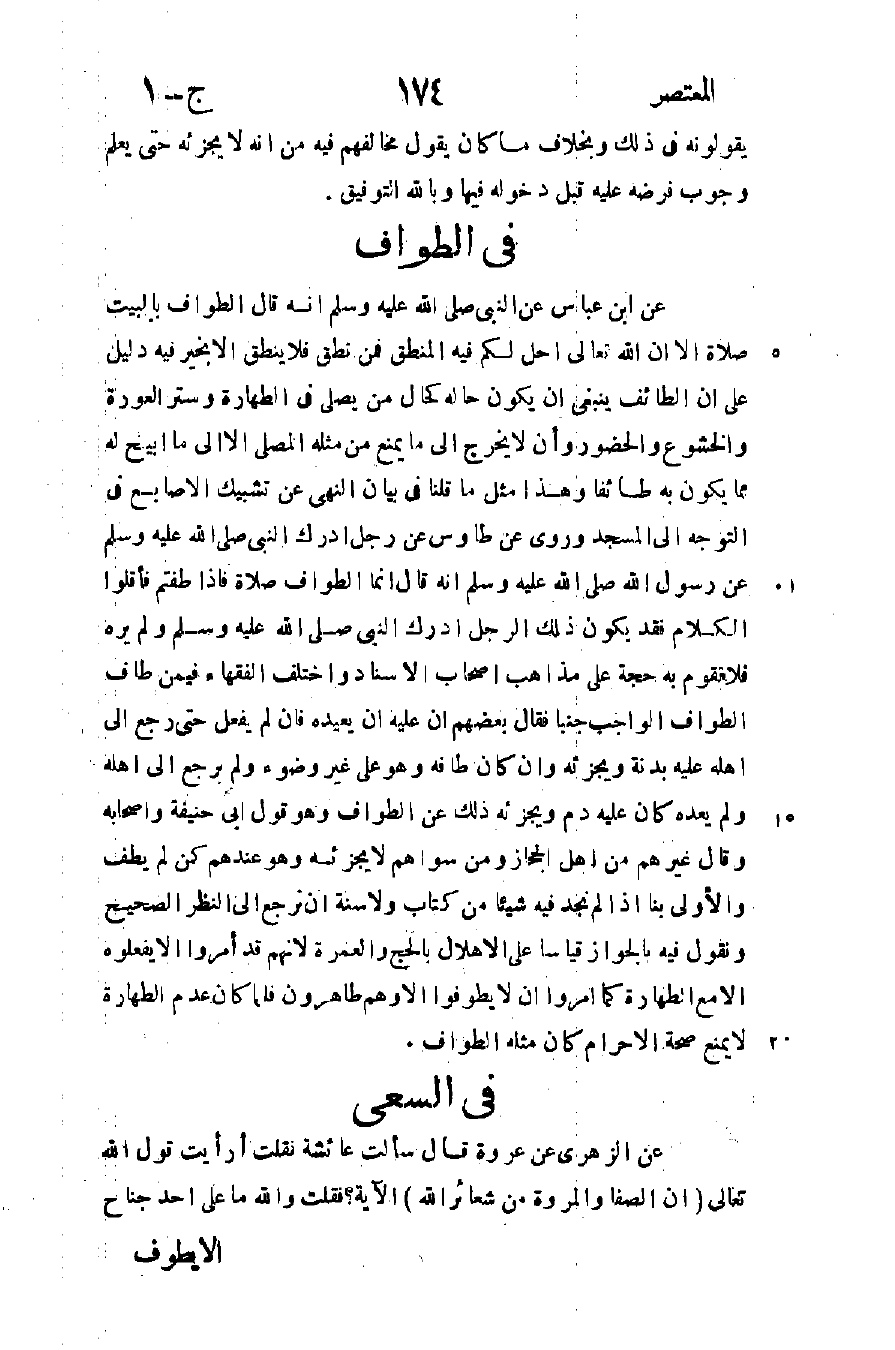 المعتصر ١٧٤ ج-١
يقولونه فى ذلك وبخلاف ما كان يقول مخالفهم فيه من انه لا يجزئه حتى يعلم
وجوب فرضه عليه قبل دخوله فيها وبالله التوفيق .
فى الطواف
عن ابن عباس عن النبى صلى الله عليه وسلم انه قال الطواف بالبيت
صلاة الا ان الله تعالى احل لكم فيه المنطق فمن نطق فلا ينطق الا بخير فيه دليل ٥
على ان الطائف ينبغى ان يكون حاله كحال من يصلى فى الطهارة وستر العورة
والخشوع والحضور وأن لا يخرج الى ما يمنع من مثله المصلى الا الى ما ابيح له
مما يكون به طائفا وهذا مثل ما قلنا فى بيان النهى عن تشبيك الاصابع فى
التوجه الى المسجد وروى عن طاوس عن رجل ادرك النبى صلى الله عليه وسلم
عن رسول الله صلى الله عليه وسلم انه قال انما الطواف صلاة فاذا طفتم فأقلوا ١٠
الكلام فقد يكون ذلك الرجل ادرك النبى صلى الله عليه وسلم ولم يره
فلا تقوم به حجة على مذاهب اصحاب الاسناد واختلف الفقهاء فيمن طاف
الطواف الواجب جنبا فقال بعضهم ان عليه ان يعيده فان لم يفعل حتى رجع الى
اهله عليه بدنة ويجزئه وان كان طافه وهو على غير وضوء ولم يرجع الى اهله
ولم يعده كان عليه دم ويجزئه ذلك عن الطواف وهو قول ابى حنيفة واصحابه ١٥
وقال غيرهم من اهل الحجاز ومن سواهم لا يجزئه وهو عندهم كمن لم يطف
والأولى بنا اذا لم نجد فيه شيئا من كتاب ولا سنة ان نرجع الى النظر الصحيح
ونقول فيه بالجواز قياسا على الاهلال بالحج والعمرة لانهم قد أمروا الا يفعلوه
الا مع الطهارة كما امروا ان لا يطوفوا الا وهم طاهرون فلما كان عدم الطهارة
لا يمنع صحة الاحرام كان مثله الطواف . ٢٠
فى السعى
عن الزهرى عن عروة قال سألت عائشة فقلت أرأيت قول الله
تعالى ( ان الصفا والمروة من شعائر الله ) الآية؟ فقلت والله ما على احد جناح
الا يطوف